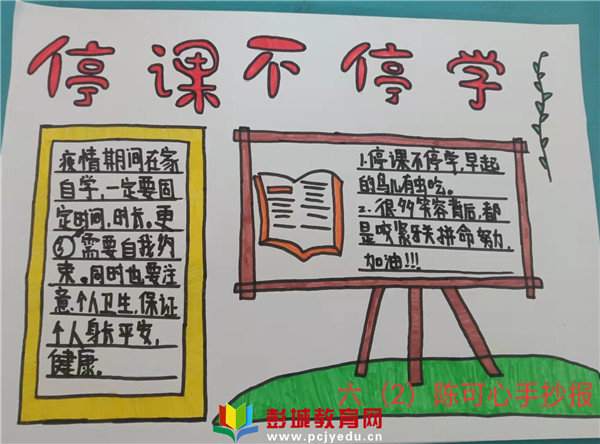 停课不停学
疫情期间在家
自学,一定要固
定时间,时长。更
需要自我约
束。同时也要注
意个人卫生,保证
个人身长平安,
健康。
1.停课不停学,早起
的鸟儿有虫吃。
2.很多笑容背后,都
是咬紧牙关拼命努力,
加油!!!
六（2）陈可心手抄报
彭城教育网
www.pcjyedu.cn